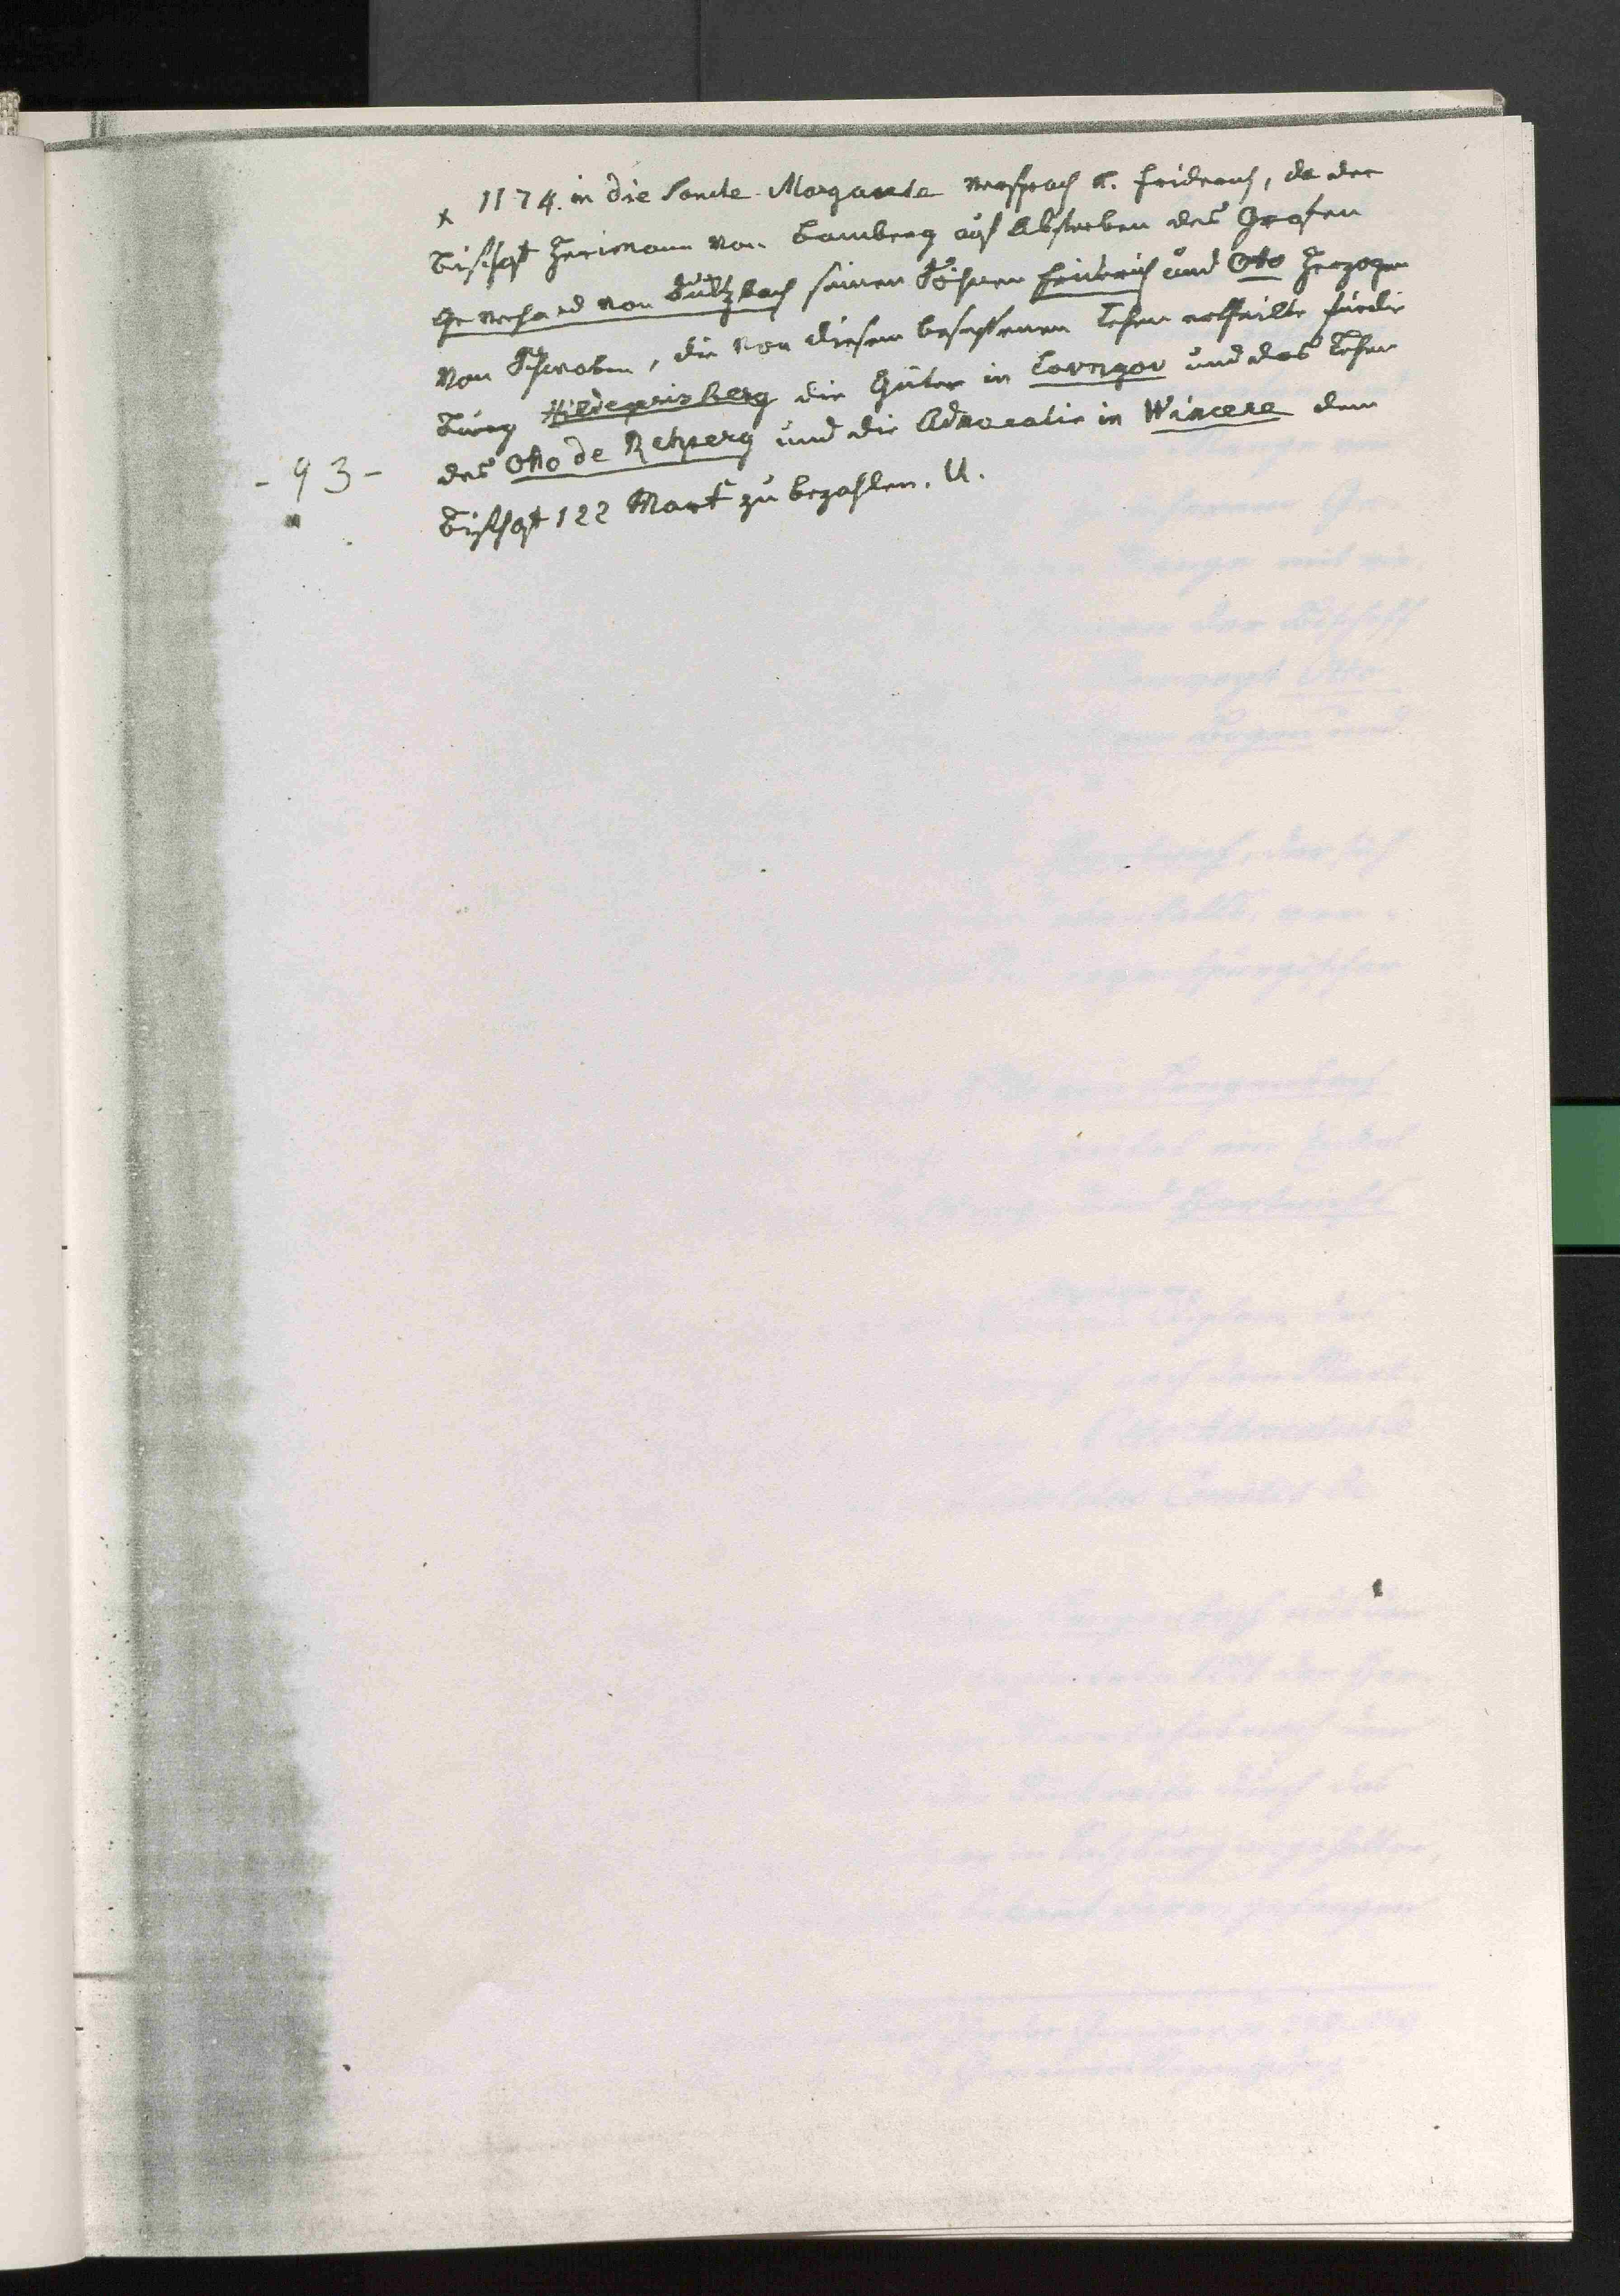 x 1174. in die Sancte Margarete versprach K. Friderich, da der
Bischof Herimann von Bamberg auf Absterben des Grafen
Geverhard von Sultzbach seinen Söhnen Friderich und Otto Herzogen
von Schwaben, die von diesem besessenen Lehen ertheilte für die
Burg Hildeprisberg die Güter in Lovngov und das Lehen
- 93 - des Otto de Retzperg und die Advocatie in Wincere dem
Bischof 122 Mark zu bezahlen. U.